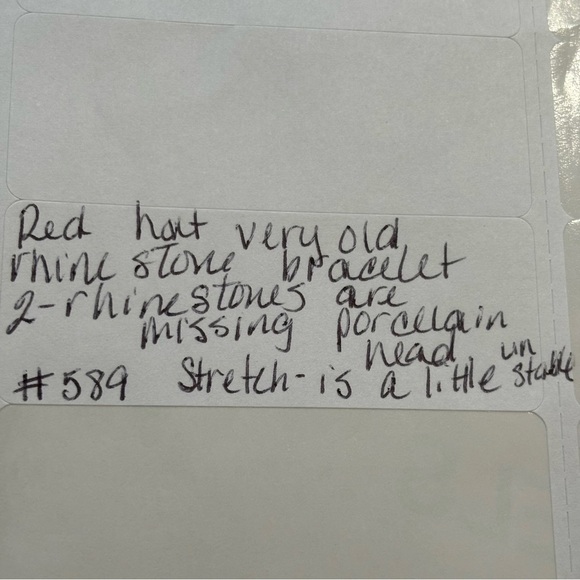 Red hat very old
rhine stone bracelet
2-rhinestones are
missing porcelain
head un
#589 Stretch-is a little stable